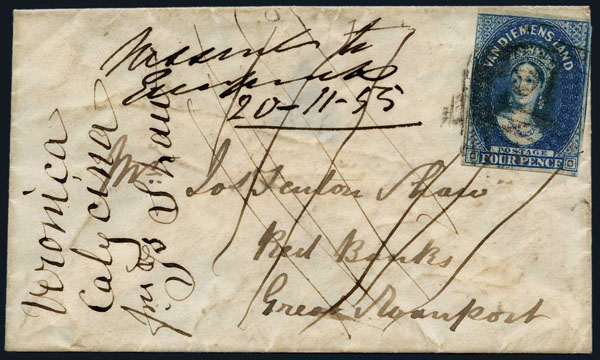 to
20-11-55
VAN DIEMENS LAND
POSTAGE
FOUR PENCE
Mr Jos Fenton Shaw
Red Banks
Great Swanport
Veronica
Calycina
Shaw